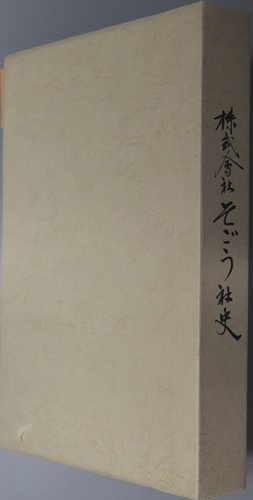 株式會社そごう社史